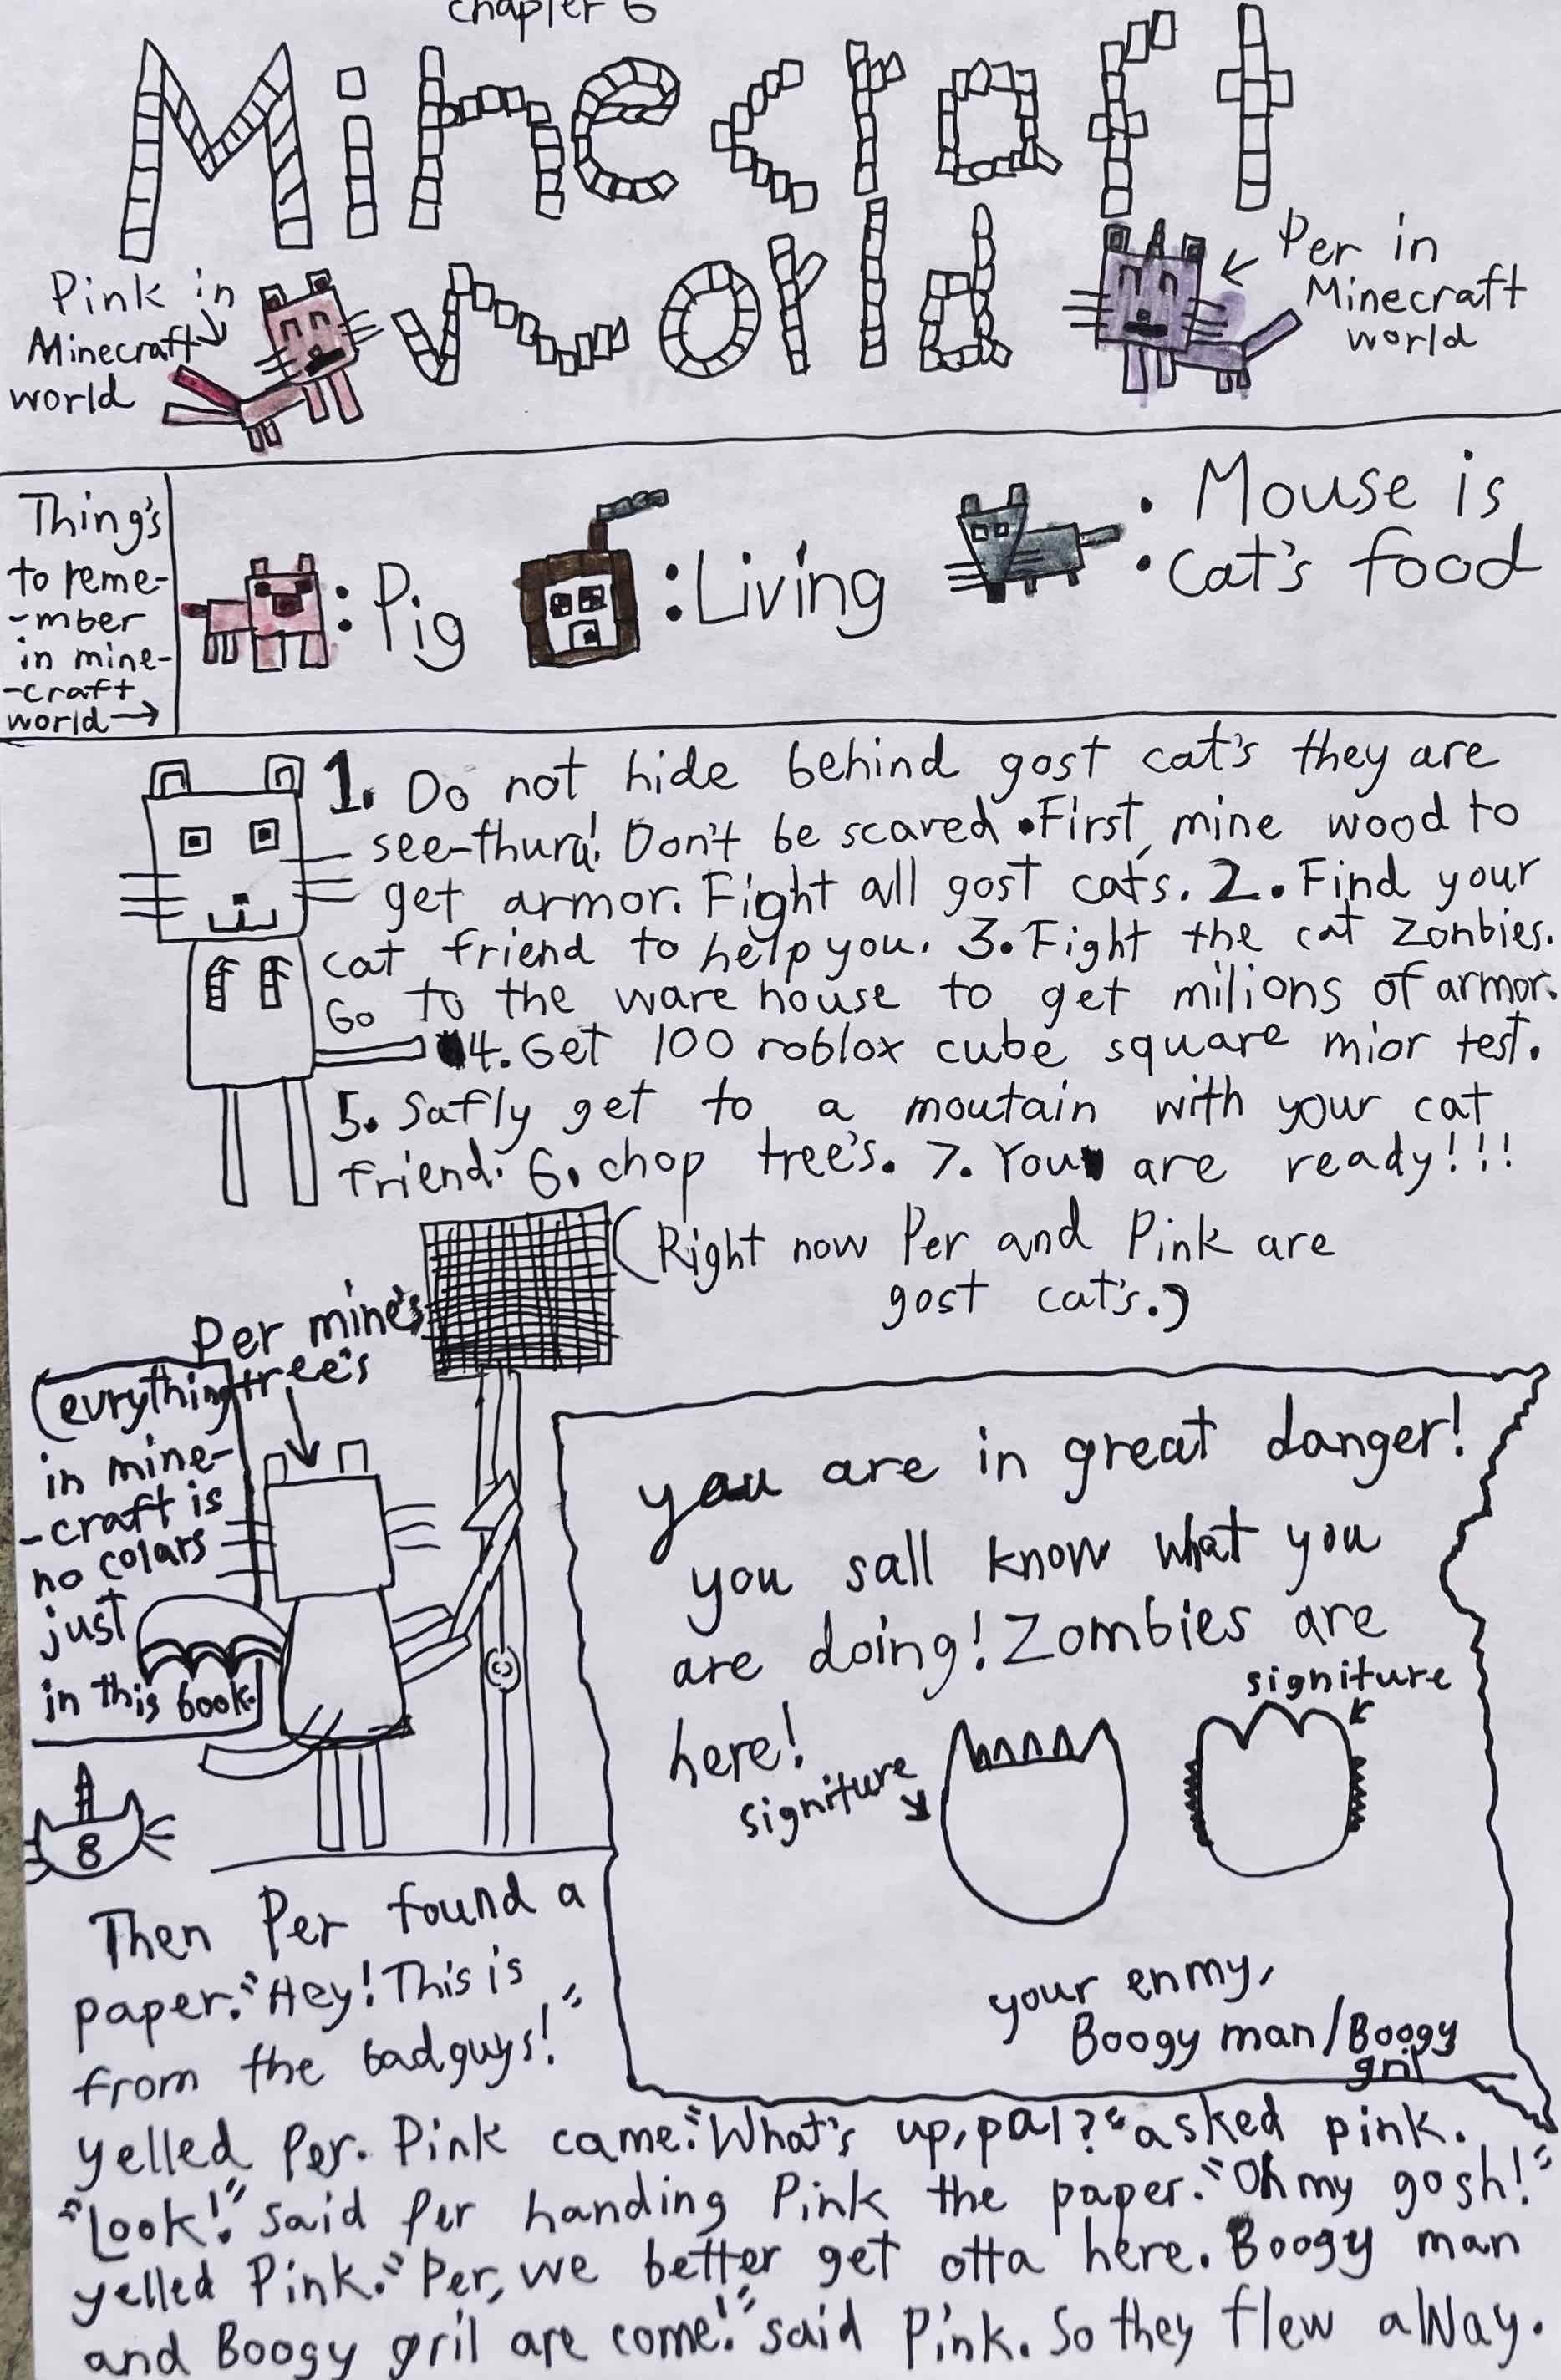 chapter 6
Minecraft
world
Pink in
Minecraft
world
Per in
Minecraft
world
Thing's
to reme-
-mber
in mine-
-craft
world→
: Pig
:Living
: Mouse is
cat's food
1. Do not hide behind gost cat's they are
see-thura! Don't be scared. First, mine wood to
get armor. Fight all gost cat's. 2. Find your
cat friend to help you. 3. Fight the cat zonbies.
Go to the ware house to get milions of armor.
4. Get 100 roblox cube square mior test.
5. Safly get to a moutain with your cat
friend. 6. chop tree's. 7. You are ready!!!
(Right now Per and Pink are
gost cat's.)
Per mine's
tree's
(evrything
in mine-
-craft is
no colars
just
in this book.
8
you are in great danger!
you sall know what you
are doing! Zombies are
here!
signiture
signiture
your enmy,
Boogy man/Boogy
gril
Then Per found a
paper. "Hey! This is
from the badguys!"
yelled Per. Pink came. "What's up, pal?" asked pink.
"Look!" said Per handing Pink the paper. "Oh my gosh!"
yelled Pink. "Per, we better get otta here. Boogy man
and Boogy gril are come!" said Pink. So they flew aWay.